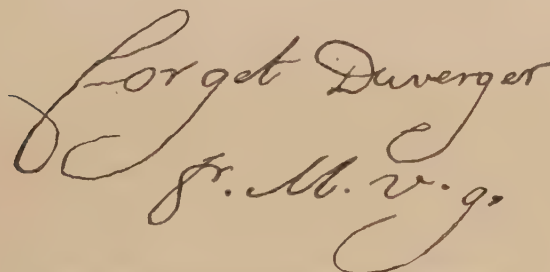 forget Duverger
M. v. g.